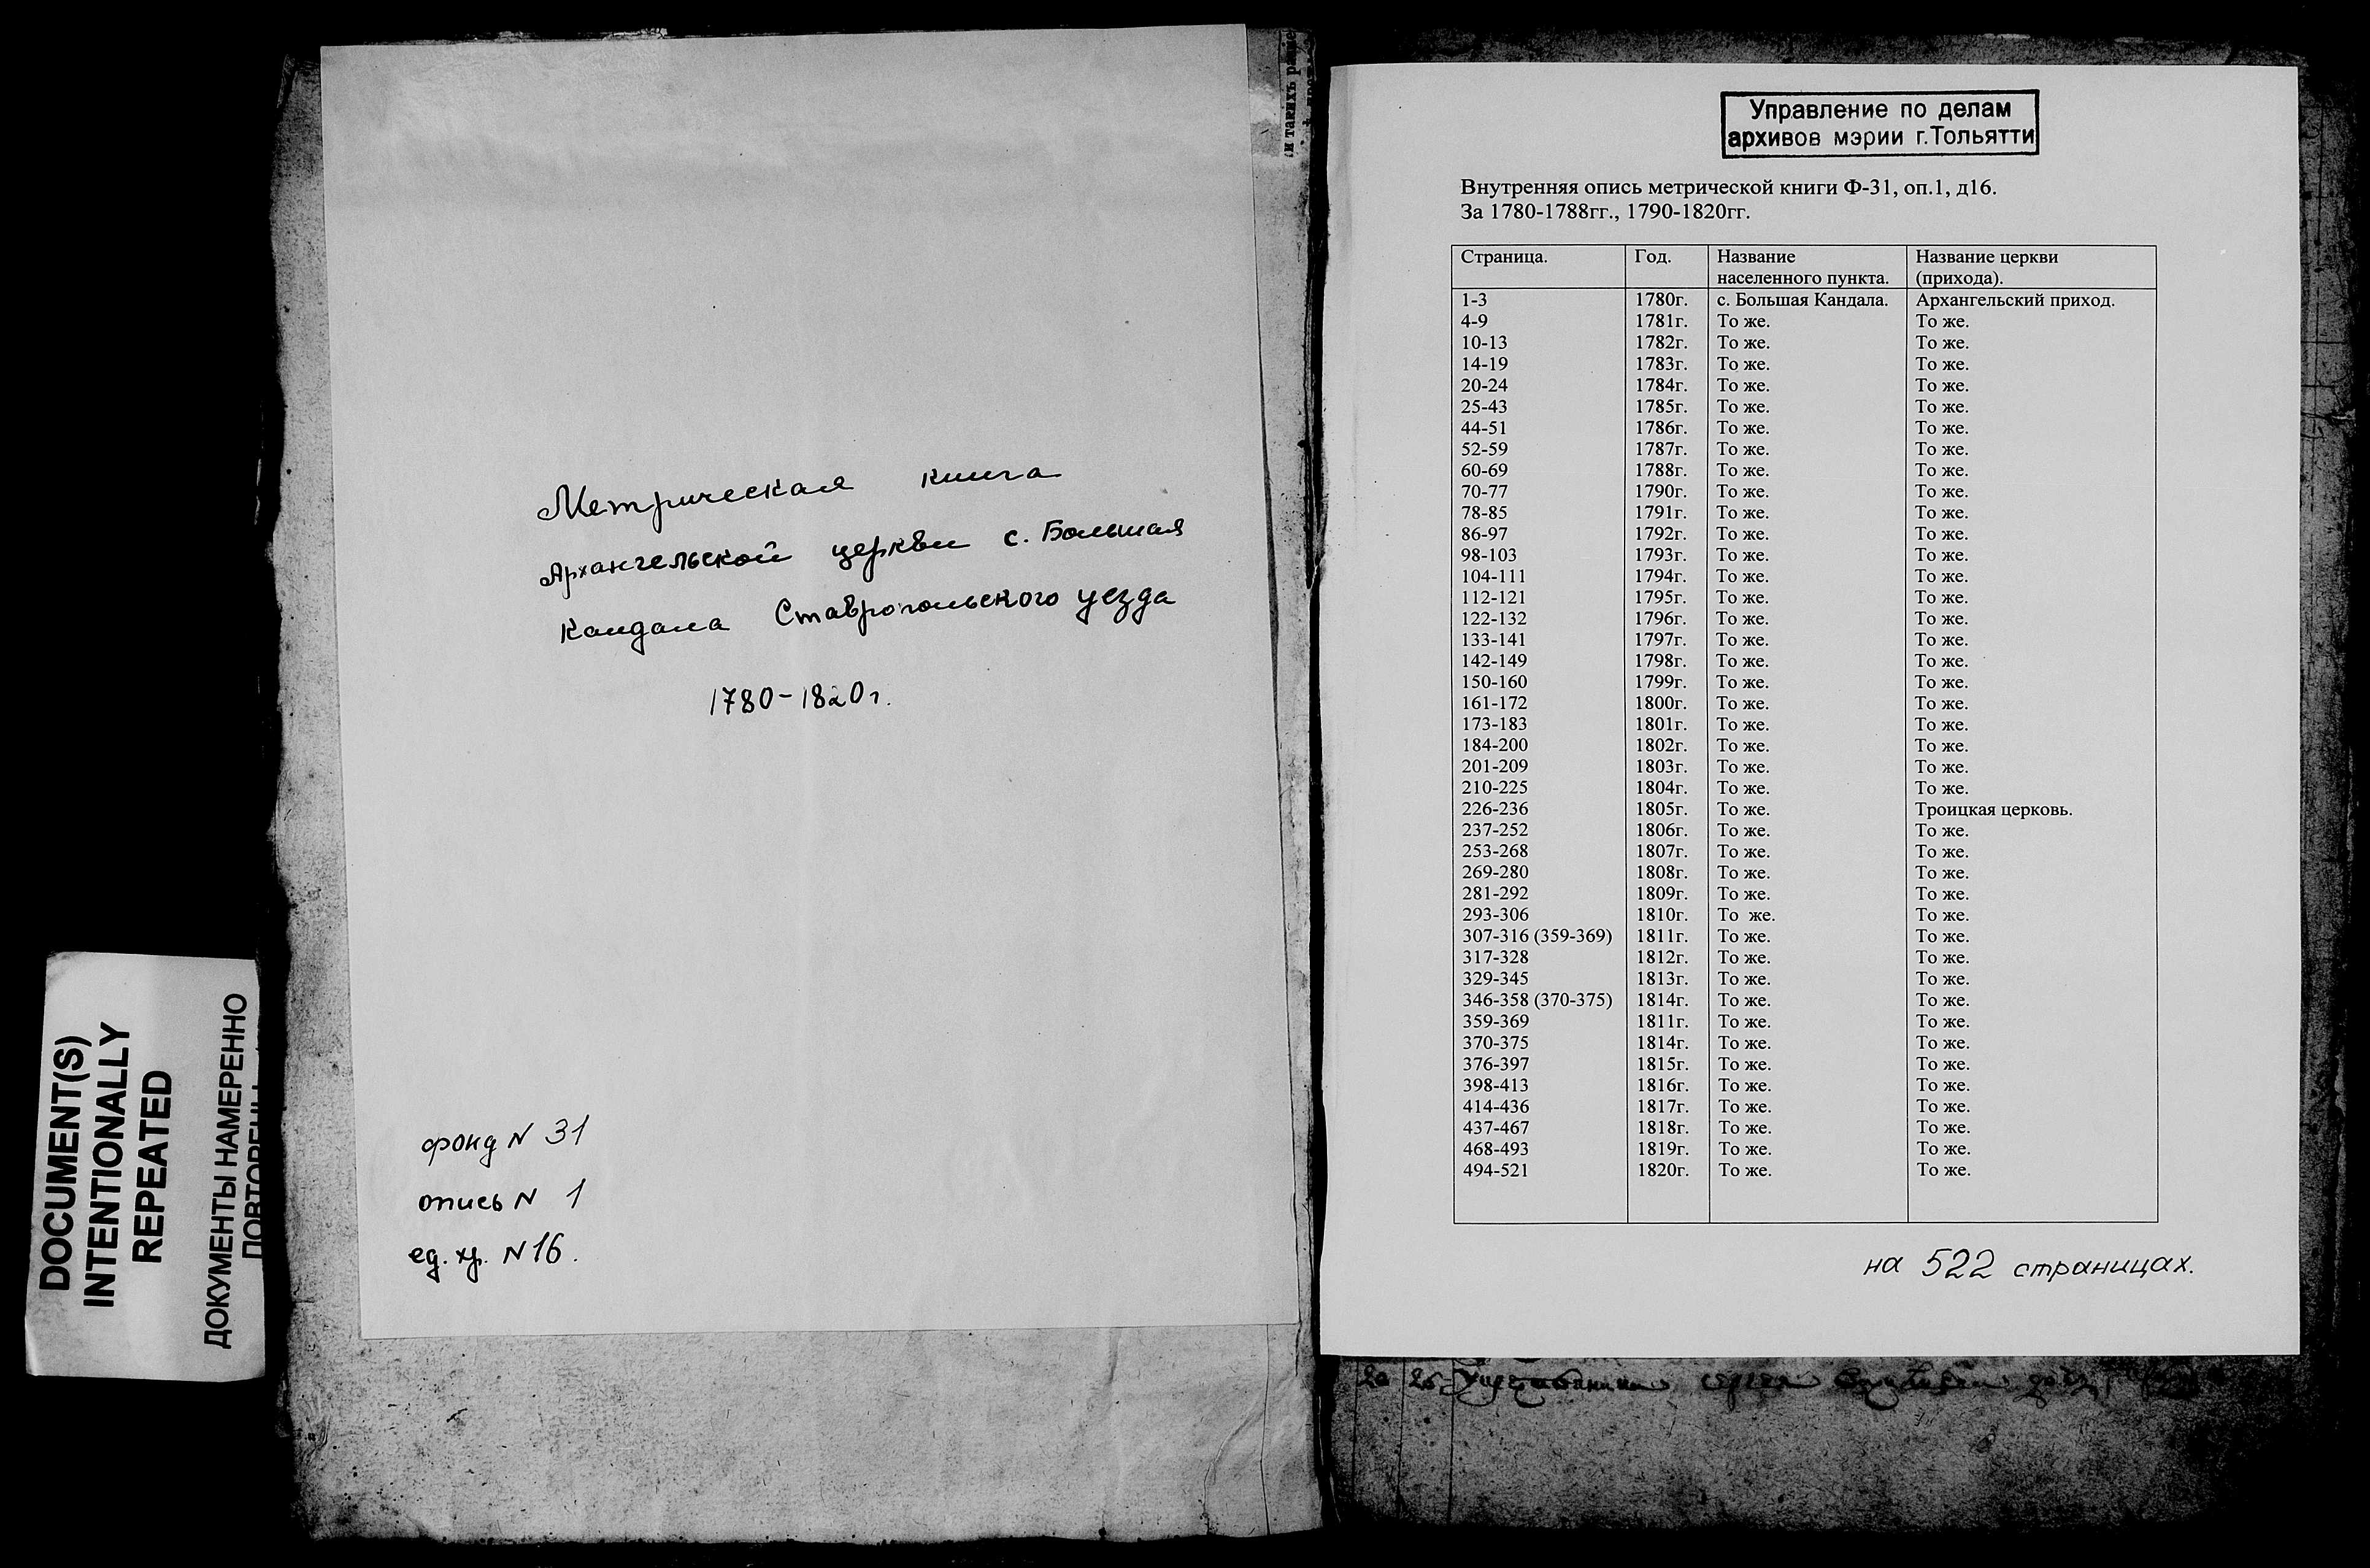 DOCUMENT(S)
INTENTIONALLY
REPEATED
ДОКУМЕНТЫ НАМЕРЕННО
Метрическая книга
Архангельской церкви с. Большая
Кандала Ставропольского уезда
1780-1820г.
фонд N 31
опись N 1
ед. хр. N 16.
Управление по делам
архивов мэрии г.Тольятти
Внутренняя опись метрической книги Ф-31, оп.1, д16.
За 1780-1788гг., 1790-1820гг.
Страница. Год. Название Название церкви
населенного пункта. (прихода).
1-3 1780г. с. Большая Кандала. Архангельский приход.
4-9 1781г. То же. То же.
10-13 1782г. То же. То же.
14-19 1783г. То же. То же.
20-24 1784г. То же. То же.
25-43 1785г. То же. То же.
44-51 1786г. То же. То же.
52-59 1787г. То же. То же.
60-69 1788г. То же. То же.
70-77 1790г. То же. То же.
78-85 1791г. То же. То же.
86-97 1792г. То же. То же.
98-103 1793г. То же. То же.
104-111 1794г. То же. То же.
112-121 1795г. То же. То же.
122-132 1796г. То же. То же.
133-141 1797г. То же. То же.
142-149 1798г. То же. То же.
150-160 1799г. То же. То же.
161-172 1800г. То же. То же.
173-183 1801г. То же. То же.
184-200 1802г. То же. То же.
201-209 1803г. То же. То же.
210-225 1804г. То же. То же.
226-236 1805г. То же. Троицкая церковь.
237-252 1806г. То же. То же.
253-268 1807г. То же. То же.
269-280 1808г. То же. То же.
281-292 1809г. То же. То же.
293-306 1810г. То же. То же.
307-316 (359-369) 1811г. То же. То же.
317-328 1812г. То же. То же.
329-345 1813г. То же. То же.
346-358 (370-375) 1814г. То же. То же.
359-369 1811г. То же. То же.
370-375 1814г. То же. То же.
376-397 1815г. То же. То же.
398-413 1816г. То же. То же.
414-436 1817г. То же. То же.
437-467 1818г. То же. То же.
468-493 1819г. То же. То же.
494-521 1820г. То же. То же.
на 522 страницах.